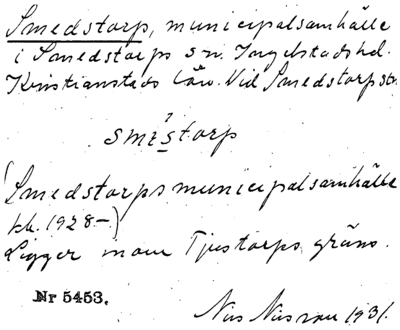 Smedstorp, municipalsamhälle
i Smedstorps sn. Ingelstads hd.
Kristianstads län. Vid Smedstorps st.
smèstorp
(Smedstorps municipalsamhälle
kb. 1928–)
Ligger inom Tjustorps gräns.
Nr 5453.
1931.